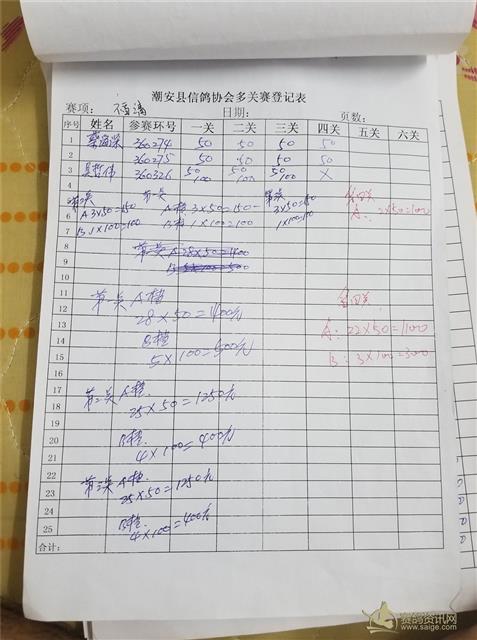 潮安县信鸽协会多关赛登记表
赛项： 日期： 页数：
序号 姓名 参赛环号 一关 二关 三关 四关 五关 六关
1 360274 50 50 50 50
2 360275 50 50 50 50
3 360326 50 100 50 100 50 100 X
第二关 第一关 第三关 3×50=150
6 A 3×50=150 A档 3×50=150 1×100=100
7 B 1×100=100 B档 1×100=100
8 第一关 A 28×50=1400
9 B 5×100=500
10
11 第一关 A档
12 28×50=1400元
13 A: 22×50=1100
14 B档
15 5×100=500元 B: 3×100=300
16
17 第二关 A档
18 25×50=1250元
19
20 B档
21 4×100=400元
22 第三关 A档
23 25×50=1250元
24 B档
25 4×100=400元
合计:
赛鸽资讯网
www.saige.com